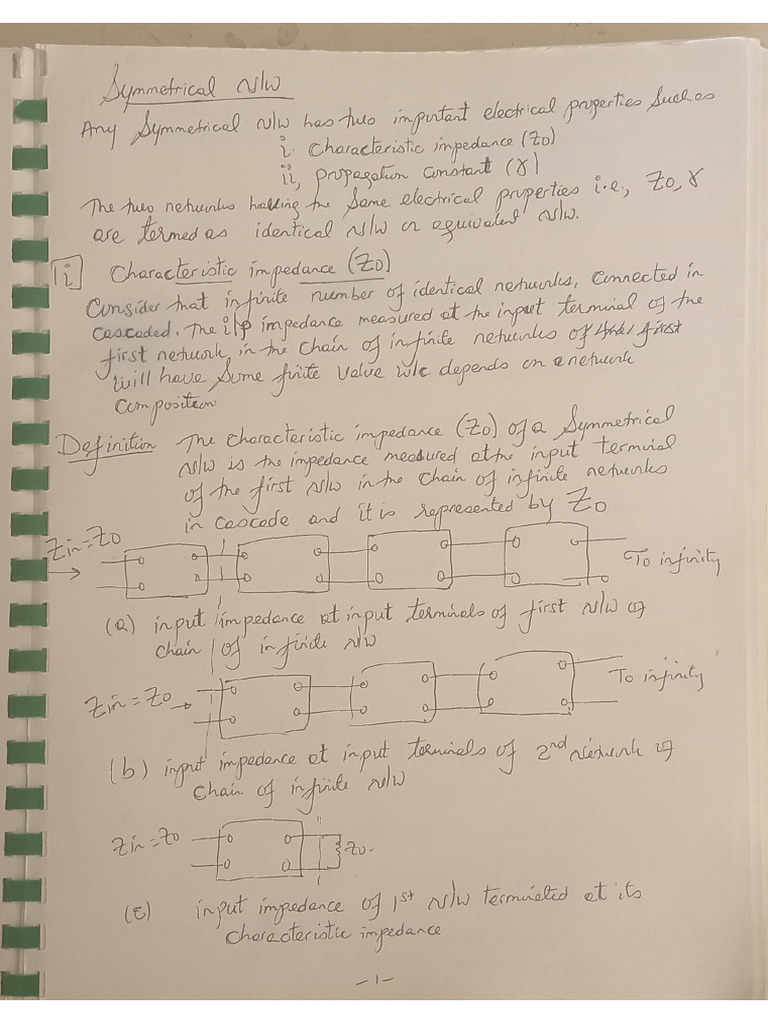 Symmetrical N/W
Any Symmetrical N/W has two important electrical properties such as
i. Characteristic impedance (Z0)
ii, propagation constant (γ)
The two networks having the Same electrical properties i.e., Z0, γ
are termed as identical N/W or equivalent N/W.
i Characteristic impedance (Z0)
Consider that infinite number of identical networks, Connected in
Cascaded. The i/p impedance measured at the input terminal of the
first network, in the Chain of infinite networks of first
will have Some finite value w/c depends on a network
Composition
Definition The characteristic impedance (Z0) of a Symmetrical
N/W is the impedance measured at the input terminal
of the first N/W in the Chain of infinite networks
in cascade and it is represented by Z0
Zin=Z0
To infinity
(a) input impedance at input terminals of first N/W of
Chain of infinite N/W
Zin=Z0
To infinity
(b) input impedance at input terminals of 2nd Network of
Chain of infinite N/W
Zin=Z0
Z0.
(c) input impedance of 1st N/W terminated at its
Characteristic impedance
-1-